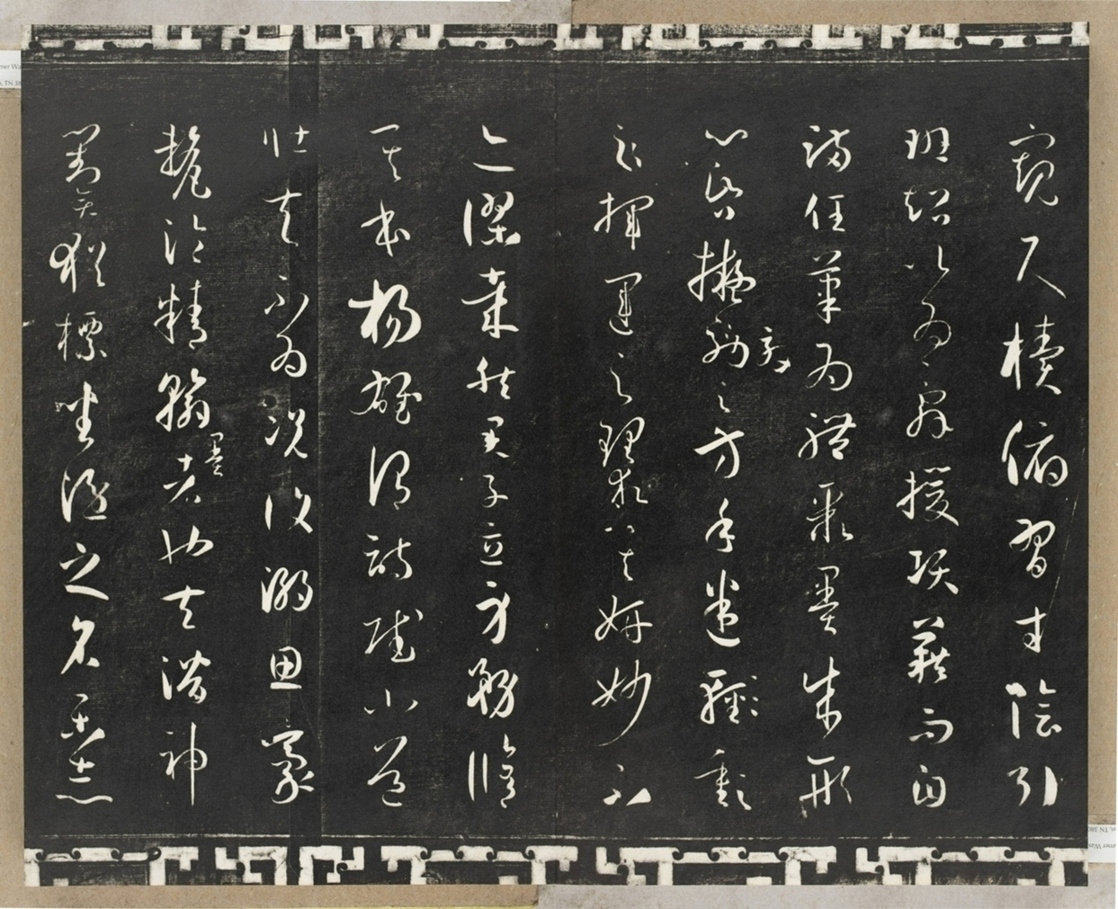 窺尺牘俯習寸陰引
班超以為辭援項藉而自
滿任筆為體聚墨成形
心昏擬效之方手迷輕重
揮運之理求其妍妙不
亦謬哉然君子立身務脩
其本楊雄謂詩賦小道
壯夫不為況復溺思豪
氂淪精翰墨者也夫潛神
對奕猶標坐隱之名樂志